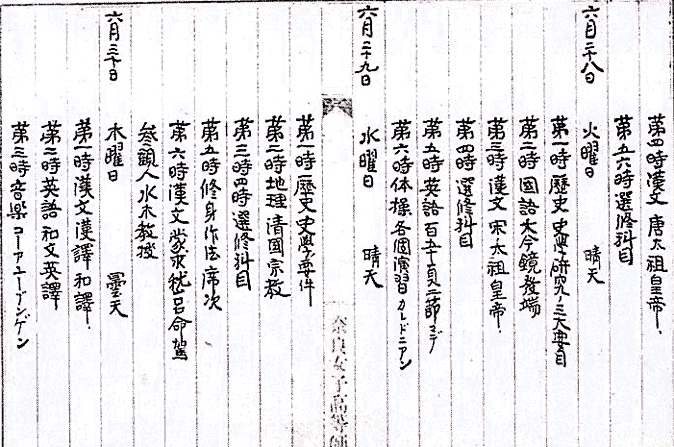 第四時 漢文 唐太祖皇帝.
第五六時 選修科目
六月二十八日 火曜日 晴天
第一時 歴史 史学研究ノ三大要目
第二時 国語 大今鏡発端
第三時 漢文 宋太祖皇帝.
第四時 選修科目
第五時 英語 百五十頁二節マデ
第六時 体操 各個演習 カレドニアン
六月二十九日 水曜日 晴天
奈良女子高等師
第一時 歴史 史学要件
第二時 地理 清国宗教
第三時四時 選修科目
第五時 修身 作法 席次
第六時 漢文 蒙求 嵆呂命駕
参観人 水木教授
六月三十日 木曜日 曇天
第一時 漢文 漢譯 和譯.
第二時 英語 和文英譯
第三時 音楽 コーアユーブンゲン